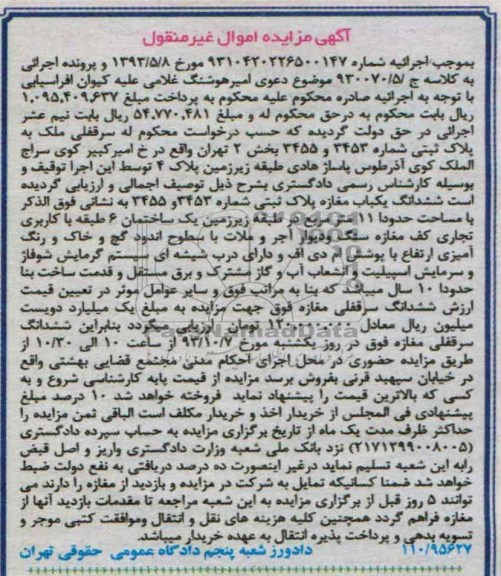 آگهی مزایده اموال غیرمنقول
بموجب اجرائیه شماره ۹۳۱۰۴۲۰۲۲۶۵۰۰۱۴۷ مورخ ۱۳۹۳/۵/۸ و پرونده اجرائی
به کلاسه ج ۹۳۰۰۷۰/۵ موضوع دعوی امیرهوشنگ غلامی علیه کیوان افراسیابی
با توجه به اجرائیه صادره محکوم علیه محکوم به پرداخت مبلغ ۱,۰۹۵,۴۰۹,۶۳۷
ریال بابت محکوم به درحق محکوم له و مبلغ ۵۴,۷۷۰,۴۸۱ ریال بابت نیم عشر
اجرائی در حق دولت گردیده که حسب درخواست محکوم له سرقفلی ملک به
پلاک ثبتی شماره ۳۴۵۳ و ۳۴۵۵ بخش ۲ تهران واقع در خ امیرکبیر کوی سراج
الملک کوی آذرطوس پاساژ هادی طبقه زیرزمین پلاک ۴ توسط این اجرا توقیف و
بوسیله کارشناس رسمی دادگستری بشرح ذیل توصیف اجمالی و ارزیابی گردیده
است ششدانگ یکباب مغازه پلاک ثبتی شماره ۳۴۵۳و ۳۴۵۵ به نشانی فوق الذکر
با مساحت حدودا ۱۱ متر مربع در طبقه زیرزمین یک ساختمان ۶ طبقه با کاربری
تجاری کف مغازه سنگ ودیوار آجر و ملات با سطوح اندود گچ و خاک و رنگ
آمیزی ارتفاع با پوشش ام دی اف و دارای درب شیشه ای سیستم گرمایش شوفاژ
و سرمایش اسپیلیت و انشعاب آب و گاز مشترک و برق مستقل و قدمت ساخت بنا
حدودا ۱۰ سال میباشد که بنا به مراتب فوق و سایر عوامل موثر در تعیین قیمت
ارزش ششدانگ سرقفلی مغازه فوق جهت مزایده به مبلغ یک میلیارد دویست
میلیون ریال معادل تومان ارزیابی میگردد بنابراین ششدانگ
سرقفلی مغازه فوق در روز یکشنبه مورخ ۹۳/۱۰/۷ از ساعت ۱۰ الی ۱۰/۳۰ از
طریق مزایده حضوری در محل اجرای احکام مدنی مجتمع قضایی بهشتی واقع
در خیابان سپهبد قرنی بفروش برسد مزایده از قیمت پایه کارشناسی شروع و به
کسی که بالاترین قیمت را پیشنهاد نماید فروخته خواهد شد ۱۰ درصد مبلغ
پیشنهادی فی المجلس از خریدار اخذ و خریدار مکلف است الباقی ثمن مزایده را
حداکثر ظرف مدت یک ماه از تاریخ برگزاری مزایده به حساب سپرده دادگستری
(۲۱۷۱۲۹۹۰۰۸۰۰۵) نزد بانک ملی شعبه وزارت دادگستری واریز و اصل قبض
رابه این شعبه تسلیم نماید درغیر اینصورت ده درصد دریافتی به نفع دولت ضبط
خواهد شد ضمنا کسانیکه تمایل به شرکت در مزایده و بازدید از مغازه را دارند می
توانند ۵ روز قبل از برگزاری مزایده به این شعبه مراجعه تا مقدمات بازدید آنها از
مغازه فراهم گردد همچنین کلیه هزینه های نقل و انتقال وموافقت کتبی موجر و
تسویه بدهی و پرداخت پذیره انتقال به عهده خریدار میباشد.
۱۱۰/۹۵۶۲۷ دادورز شعبه پنجم دادگاه عمومی حقوقی تهران